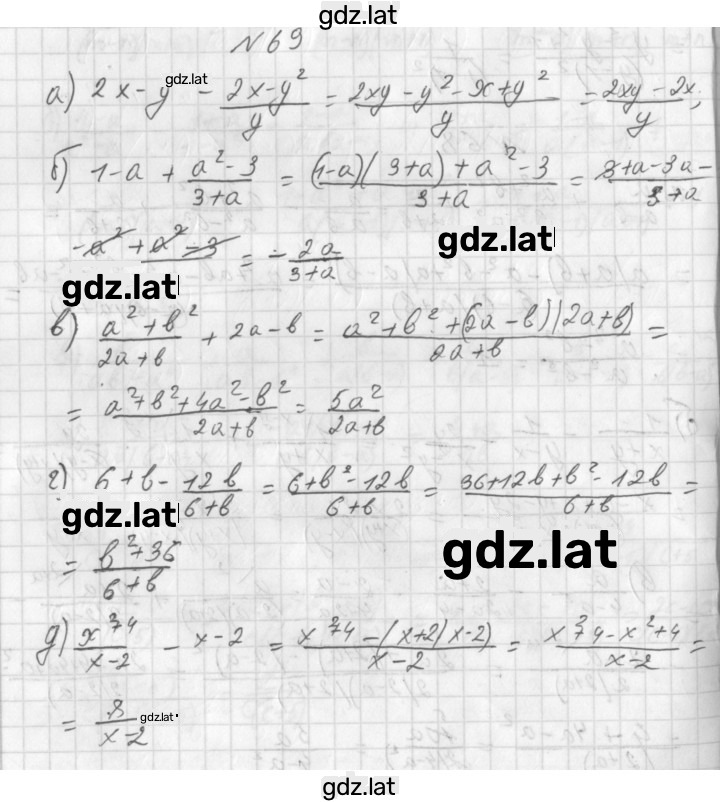 gdz.lat
N69
а) 2x-y - \frac{2x-y^2}{y} = \frac{2xy-y^2-2x+y^2}{y} = \frac{2xy-2x}{y};
gdz.lat
б) 1-a + \frac{a^2-3}{3+a} = \frac{(1-a)(3+a)+a^2-3}{3+a} = \frac{3+a-3a-}{3+a}
gdz.lat
\frac{-a^2+a^2-3}{} = -\frac{2a}{3+a}
gdz.lat
в) \frac{a^2+b^2}{2a+b} + 2a-b = \frac{a^2+b^2+(2a-b)(2a+b)}{2a+b} =
= \frac{a^2+b^2+4a^2-b^2}{2a+b} = \frac{5a^2}{2a+b}
г) 6+b - \frac{12b}{6+b} = \frac{6+b^2-12b}{6+b} = \frac{36+12b+b^2-12b}{6+b} =
gdz.lat
gdz.lat
= \frac{b^2+36}{6+b}
д) \frac{x^2+4}{x-2} - x-2 = \frac{x^2+4-(x+2)(x-2)}{x-2} = \frac{x^2+4-x^2+4}{x-2} =
= \frac{8}{x-2}
gdz.lat
gdz.lat